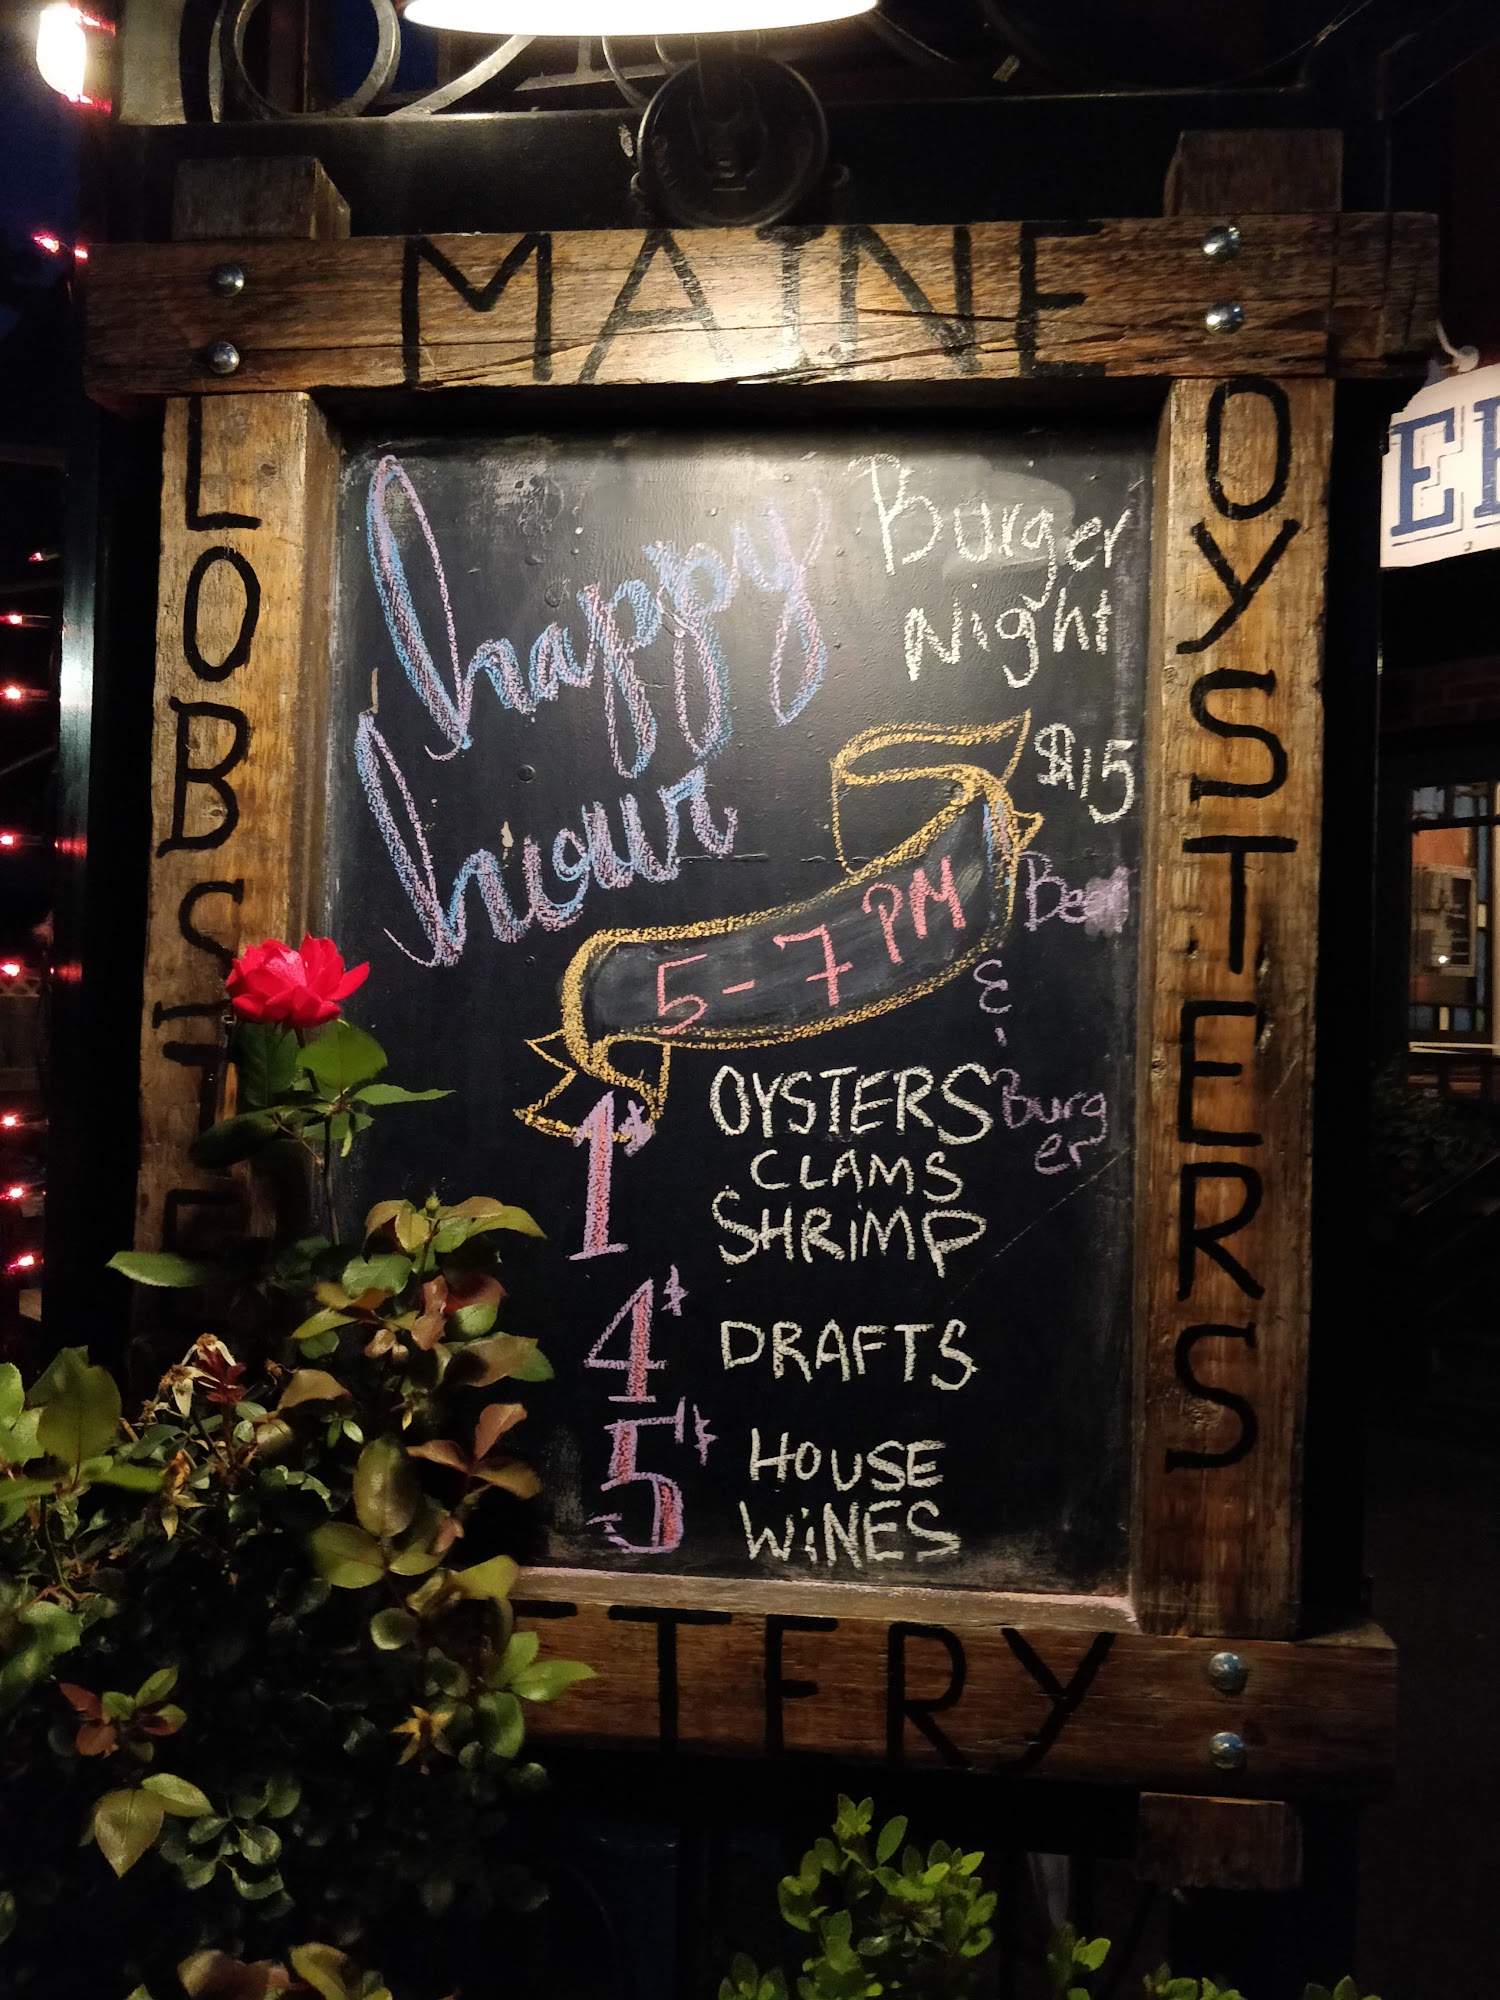 MAINE
LOBSTE
OYSTERS
happy
hour
5-7 PM
1 OYSTERS
CLAMS
SHRIMP
4 DRAFTS
5 HOUSE
WINES
Burger
Night
$15
Beer
&
Burg
er
TERY
E